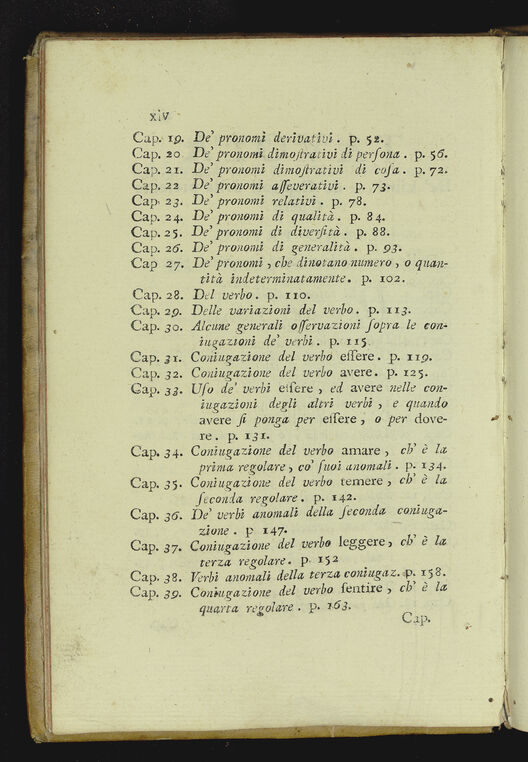 xiv
Cap. 19. De' pronomi derivativi. p. 52.
Cap. 20 De' pronomi dimoſtrativi di perſona. p. 56.
Cap. 21. De' pronomi dimoſtrativi di coſa. p. 72.
Cap. 22 De' pronomi aſſeverativi. p. 73.
Cap. 23. De' pronomi relativi. p. 78.
Cap. 24. De' pronomi di qualità. p. 84.
Cap. 25. De' pronomi di diverſità. p. 88.
Cap. 26. De' pronomi di generalità. p. 93.
Cap 27. De' pronomi, che dinotano numero, o quan-
tità indeterminatamente. p. 102.
Cap. 28. Del verbo. p. 110.
Cap. 29. Delle variazioni del verbo. p. 113.
Cap. 30. Alcune generali oſſervazioni ſopra le con-
iugazioni de' verbi. p. 115
Cap. 31. Coniugazione del verbo eſſere. p. 119.
Cap. 32. Coniugazione del verbo avere. p. 125.
Cap. 33. Uſo de' verbi eſſere, ed avere nelle con-
iugazioni degli altri verbi, e quando
avere ſi ponga per eſſere, o per dove-
re. p. 131.
Cap. 34. Coniugazione del verbo amare, ch' è la
prima regolare, co' ſuoi anomali. p. 134.
Cap. 35. Coniugazione del verbo temere, ch' è la
ſeconda regolare. p. 142.
Cap. 36. De' verbi anomali della ſeconda coniuga-
zione. p 147.
Cap. 37. Coniugazione del verbo leggere, ch' è la
terza regolare. p. 152
Cap. 38. Verbi anomali della terza coniugaz. p. 158.
Cap. 39. Coniugazione del verbo ſentire, ch' è la
quarta regolare. p. 163.
Cap.